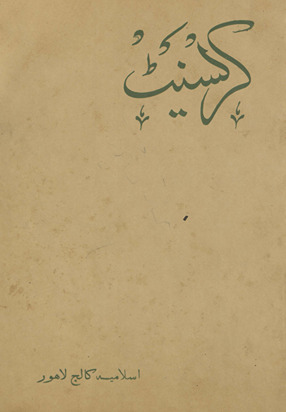 کریسنٹ
اسلامیہ کالج لاہور